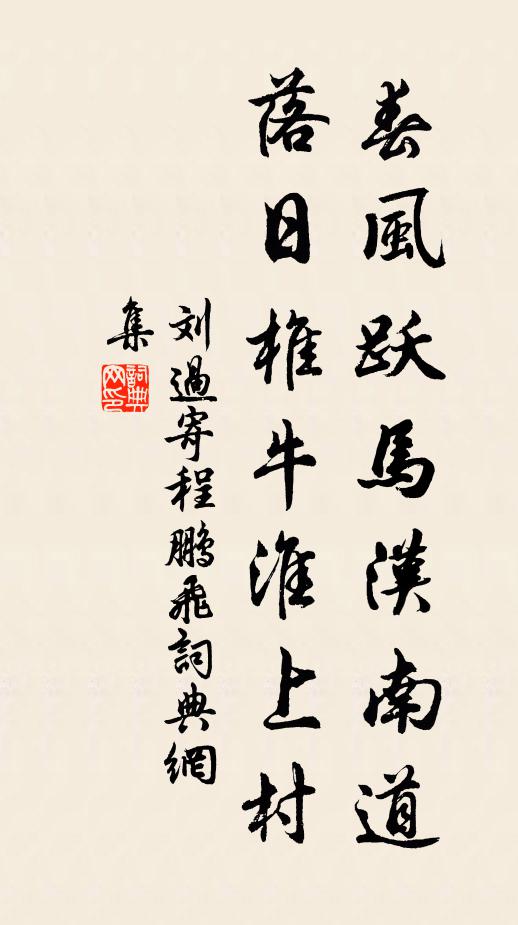 春風跃馬漢南道
落日椎牛淮上村
刘過寄程鵬飛詞典網
集
詞典
网印